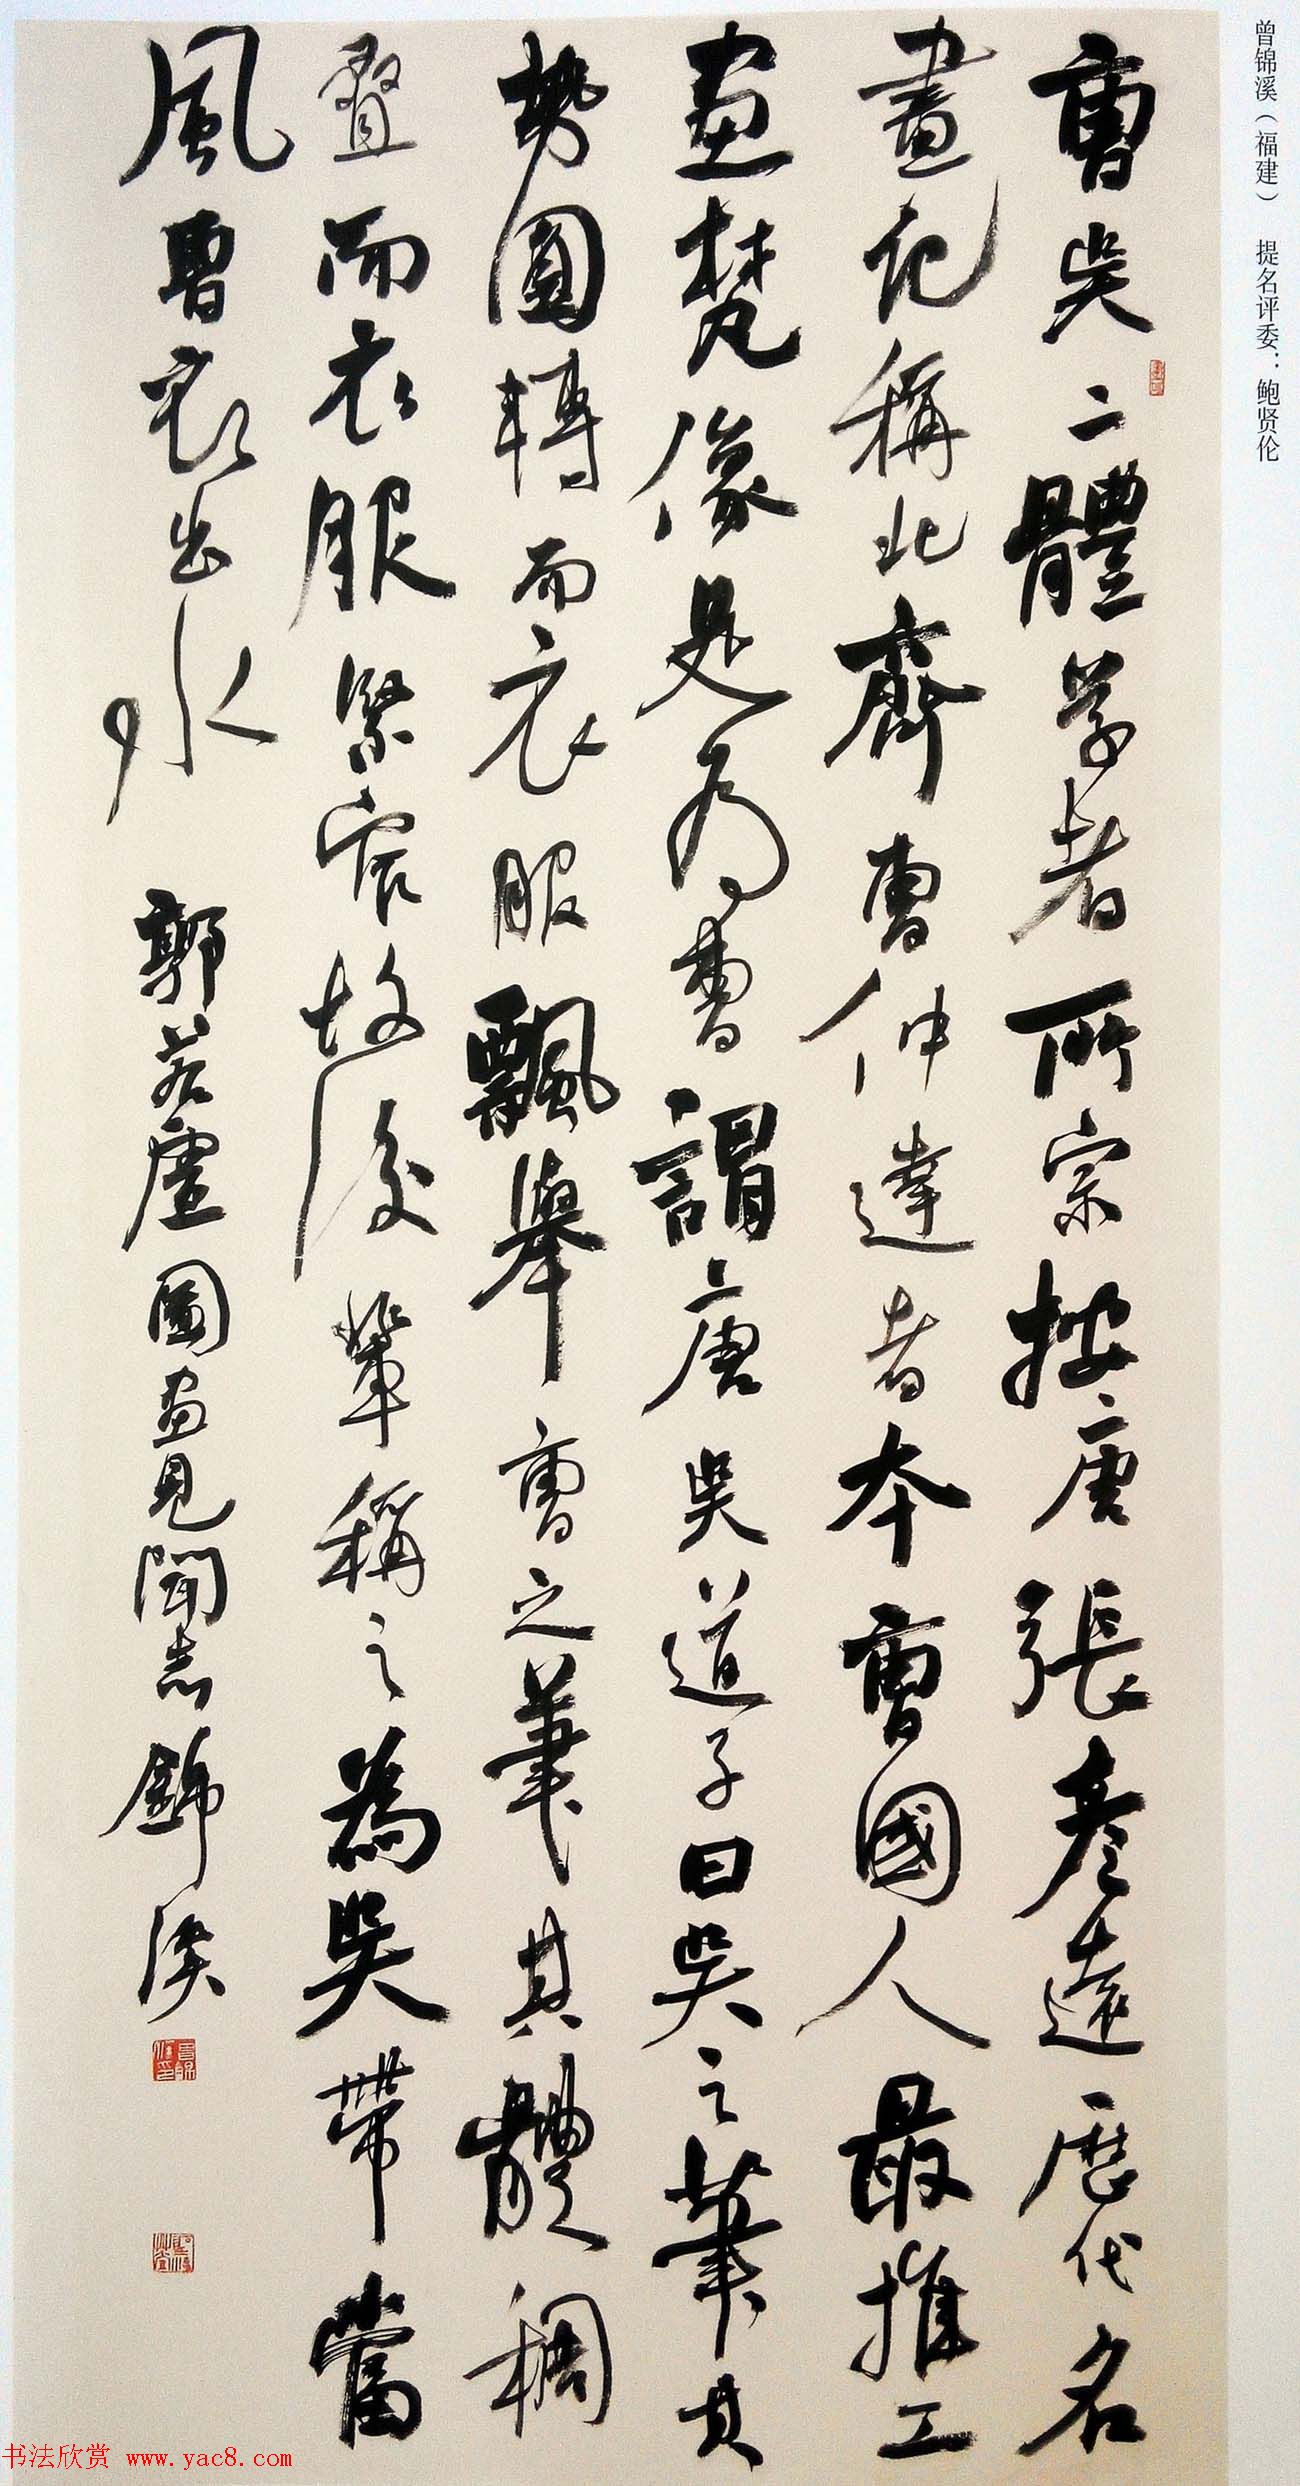 曾锦溪（福建） 提名评委：鲍贤伦
曹吴二體学者所宗按唐張彦遠历代名
畫记稱北齊曹仲達者本曹國人最推工
画梵像是为曹謂唐吴道子曰吴之筆其
勢圓轉而衣服飄舉曹之筆其體稠
疊而衣服緊窄故後輩稱之為吴帶當
風曹衣出水 郭若虚圖画見聞志錦溪
书法欣赏 www.yac8.com